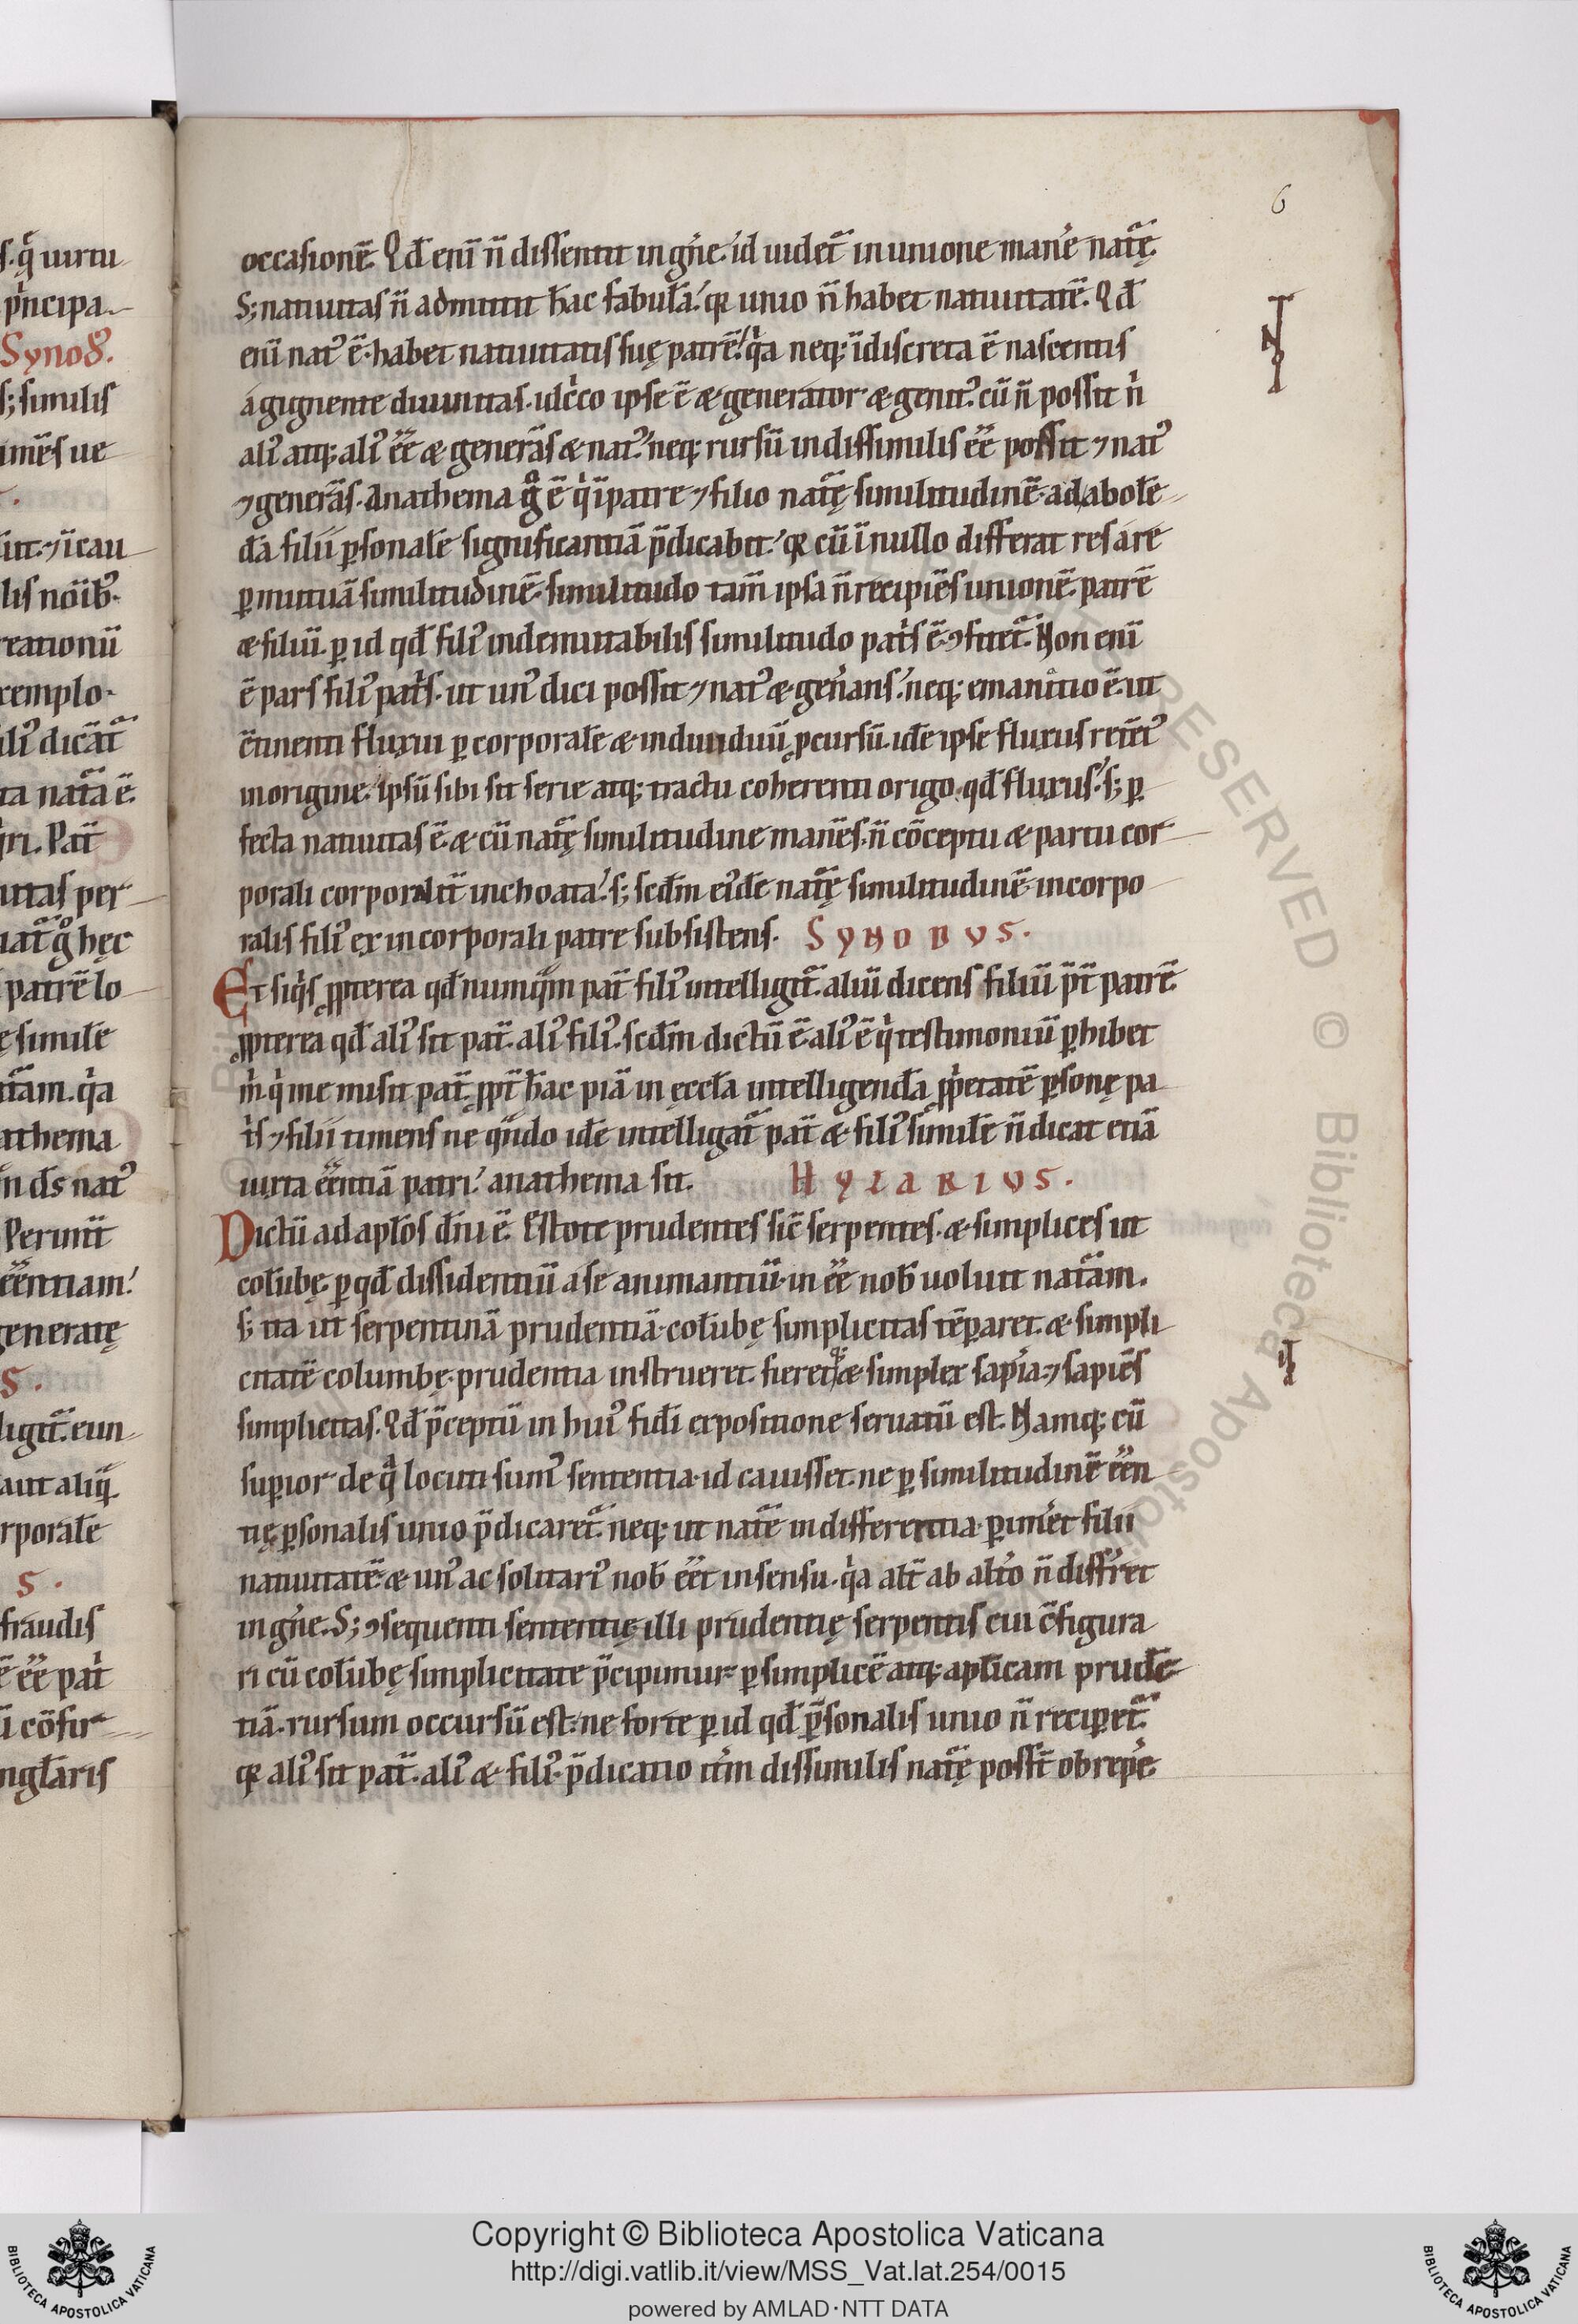 6
occasionē. Qđ eni n̄ dissentit in gñe. id uidet᷑ in unione manē natę.
S; natiuitas n̄ admittit hāc fabulā. qꝛ unio n̄ habet natiuitatē. Qđ
eni natꝰ ē. habet natiuitatis suę patrē. qa neq; īdiscreta ē nascentis
a gignente diuinitas. idcco ipse ē & generator & genitꝰ. cū n̄ possit n̄
aliꝰ atq; aliꝰ eē & generās & natꝰ. neq; rursū indissimilis eē possit ⁊ natꝰ
⁊ generās. Anathema g̊ ē q ī patre ⁊ filio natę similitudinē. ad abolē
dā filii ꝑsonalē significantiā p̄dicabit. qꝛ cū ī nullo differat res a re
ꝑ mutuā similitudinē. similitudo tam̄ ipsa n̄ recipiēs unionē. patrē
& filiū. ꝑ id qđ filiꝰ indemutabilis similitudo patis ē. ꝯfitet᷑. Non eni
ē pars filiꝰ patis. ut unꝰ dici possit ⁊ natꝰ & genans. neq; emanatio ē. ut
c̄tinenti fluxui ꝑ corporalē & indiuiduū ꝓcursū. idē ipse fluxus retēꝰ
in origine. ipsū sibi sit serie atq; tractu coherenti origo. qđ fluxus. s; ꝑ
fecta natiuitas ē. & cū natę similitudine manēs. n̄ cōceptu & partu cor
porali corporalit̄ inchoata. s; scđm eiꝰdē natę similitudinē. incorpo
ralis filiꝰ ex incorporali patre subsistens. SYNODVS.
Et siqs ꝓpterea qđ numqm pat̄ filiꝰ intelligit᷑. aliū dicens filiū p̄t patrē.
ꝓpterea qđ aliꝰ sit pat̄. aliꝰ filiꝰ. scđm dictū ē. aliꝰ ē q testimoniū ꝑhibet
m q me misit pat̄. ꝓpt̄ hāc piā in ęccła intelligendā ꝓpetatē ꝑsonę pa
tis ⁊ filii timens ne qn̄do idē intelligat᷑ pat̄ & filiꝰ similē n̄ dicat etiā
iuxta eēntiā patri. anathema sit. HYLARIVS.
Dictū ad apłos dn̄i ē. Estote prudentes sic̄ serpentes. & simplices ut
colūbę. ꝑ qđ dissidentiū a se animantiū. in eē nob uoluit natam.
s; ita ut serpentinā prudentiā. colūbę simplicitas tēꝑaret. & simpli
citatē columbę. prudentia instrueret. fieretq; & simplex sapia. ⁊ sapiēs
simplicitas. Qđ p̄ceptū in huiꝰ fidi expositione seruatū est. Namq; cū
suꝑior de q locuti sumꝰ sententia. id cauisset. ne ꝑ similitudinē eēn
tię. ꝑsonalis unio p̄dicaret᷑. neq; ut natē indifferentia. ꝑimet filii
natiuitatē. & unꝰ ac solitariꝰ nob eēt in sensu. qa alt̄ ab alto n̄ diffret
in gñe. S; ꝯsequenti sententię. illi prudentię serpentis cui c̄figura
ri cū colūbę simplicitate p̄cipimur. ꝑ simplicē atq; aplicam prudē
tiā. rursum occursū est. ne forte ꝑ id qđ ꝑsonalis unio n̄ reciꝑet᷑.
qꝛ aliꝰ sit pat̄. aliꝰ & filiꝰ. p̄dicatio itm dissimilis natę posst̄ obrepe.
Copyright © Biblioteca Apostolica Vaticana
http://digi.vatlib.it/view/MSS_Vat.lat.254/0015
powered by AMLAD·NTT DATA